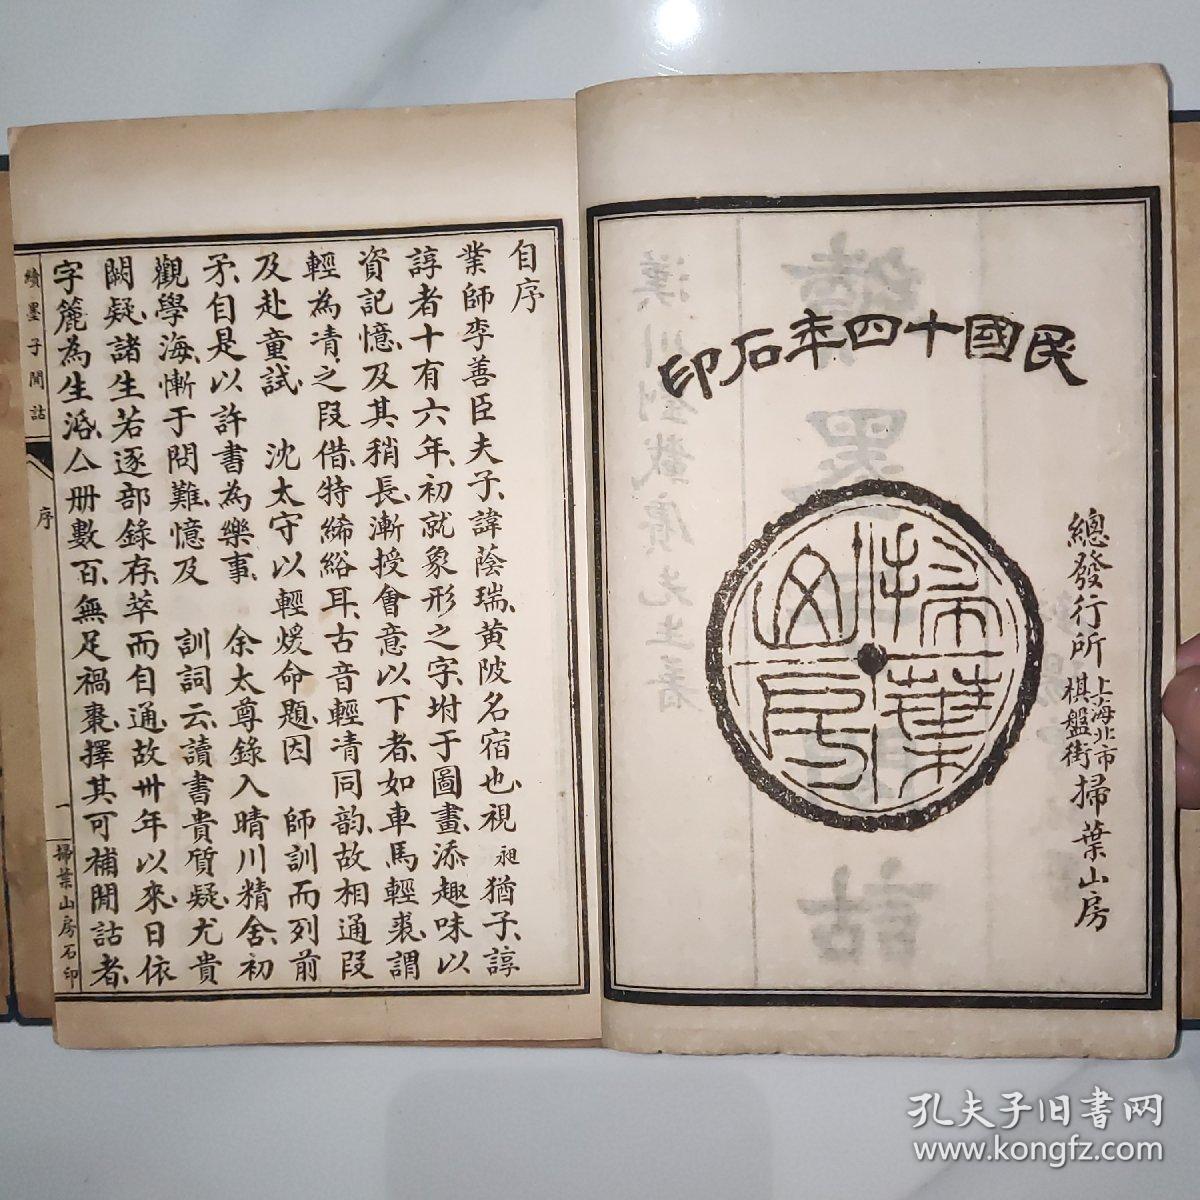 民國十四年石印
掃葉山房
總發行所 上海北市棋盤街 掃葉山房
自序
業師李善臣夫子、諱蔭瑞、黄陂名宿也、視昶猶子、諄
諄者十有六年、初就象形之字、坿于圖畫、添趣味以
資記憶、及其稍長、漸授會意以下者、如車馬輕裘、謂
輕為凊之叚借、特絺綌耳、古音輕凊同韵、故相通叚
及赴童試 沈太守以輕煖命題、因 師訓而列前
矛、自是以許書為樂事、 余太尊錄入晴川精舍、初
觀學海、慚于問難、憶及 訓詞云、讀書貴質疑、尤貴
闕疑、諸生若逐部錄存、萃而自通、故卅年以來、日依
字簏為生活、亼册數百、無足禍棗、擇其可補閒詁者、
續墨子閒詁 序 一 掃葉山房石印
續墨子閒詁
漢川劉載賡先生著
孔夫子旧书网
www.kongfz.com